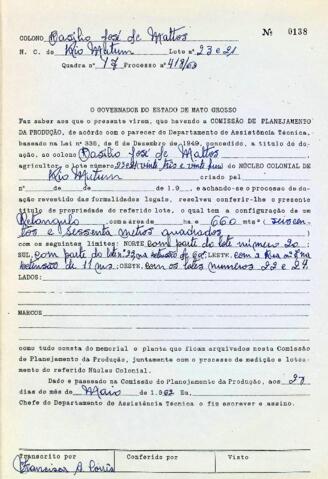 Nº 0138
COLONO Basilio José de Mattos
N. C. de Rio Mutum Lote nº 23 e 21
Quadra nº 17 Processo nº 418/60
O GOVERNADOR DO ESTADO DE MATO GROSSO
Faz saber aos que o presente virem, que havendo a COMISSÃO DE PLANEJAMENTO
DA PRODUÇÃO, de acôrdo com o parecer do Departamento de Assistência Técnica,
baseado na Lei nº 336, de 6 de Dezembro de 1949, concedido, a título do doa-
ção, ao colono Basilio José de Mattos
agricultor, o lote número 23 e 21 vinte três e vinte um do NÚCLEO COLONIAL DE
Rio Mutum criado pel
nº de de de 1.9 e achando-se o processo de do-
ação revestido das formalidades legais, resolveu conferir-lhe o presente
título de propriedade do referido lote, o qual tem a configuração de um
Retangulo com a área de ha e 660 mts² (seiscen-
tos e sessenta metros quadrados
com os seguintes limites: NORTE, com parte do lote número 20
SUL, com parte do lote nº 22 na extensão de 60: LESTE, com a Rua nº 8 na
extensão de 11 ms: OESTE, com os lotes numeros 22 e 24.
LADOS:
MARCOS
como tudo consta do memorial e planta que ficam arquivados nesta Comissão
de Planejamento da Produção, juntamente com o processo de medição e loteamen-
to do referido Núcleo Colonial.
Dado e passado na Comissão do Planejamento da Produção, aos 27
dias do mês de Maio de 1.962 Eu,
Chefe do Departamento de Assistência Técnica o fiz escrever e assino.
Transcrito por Conferido por Visto
Francisca A.